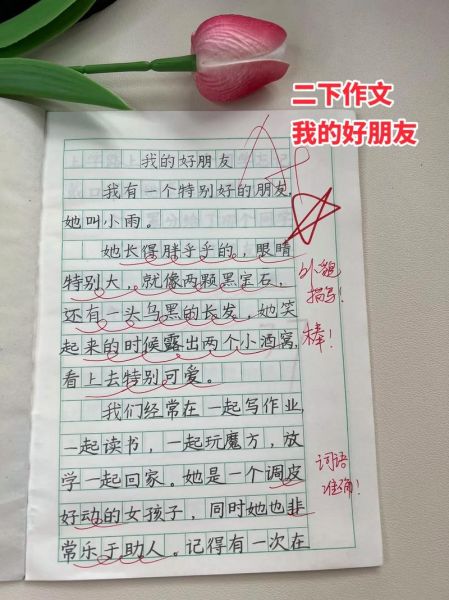 二下作文
我的好朋友
我的好朋友
我有一个特别好的朋友,
她叫小雨。
她长得胖乎乎的,眼睛
特别大,就像两颗黑宝石,
还有一头乌黑的长发,她笑
起来的时候露出两个小酒窝,
看上去特别可爱。
外貌
描写!
棒!
我们经常在一起写作业,
一起读书,一起玩魔方,放
学一起回家。她是一个调皮
好动的女孩子,同时她也非
常乐于助人。记得有一次在
词语
准确!